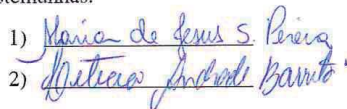 temunhas:
1) Maria de Jesus S. Pereira
2) Andrade Barreto